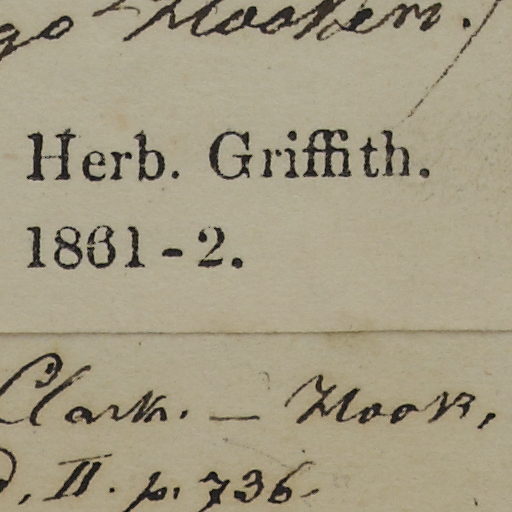 go Hookeri.
Herb. Griffith.
1861-2.
Clark. — Hook,
II. p. 736.